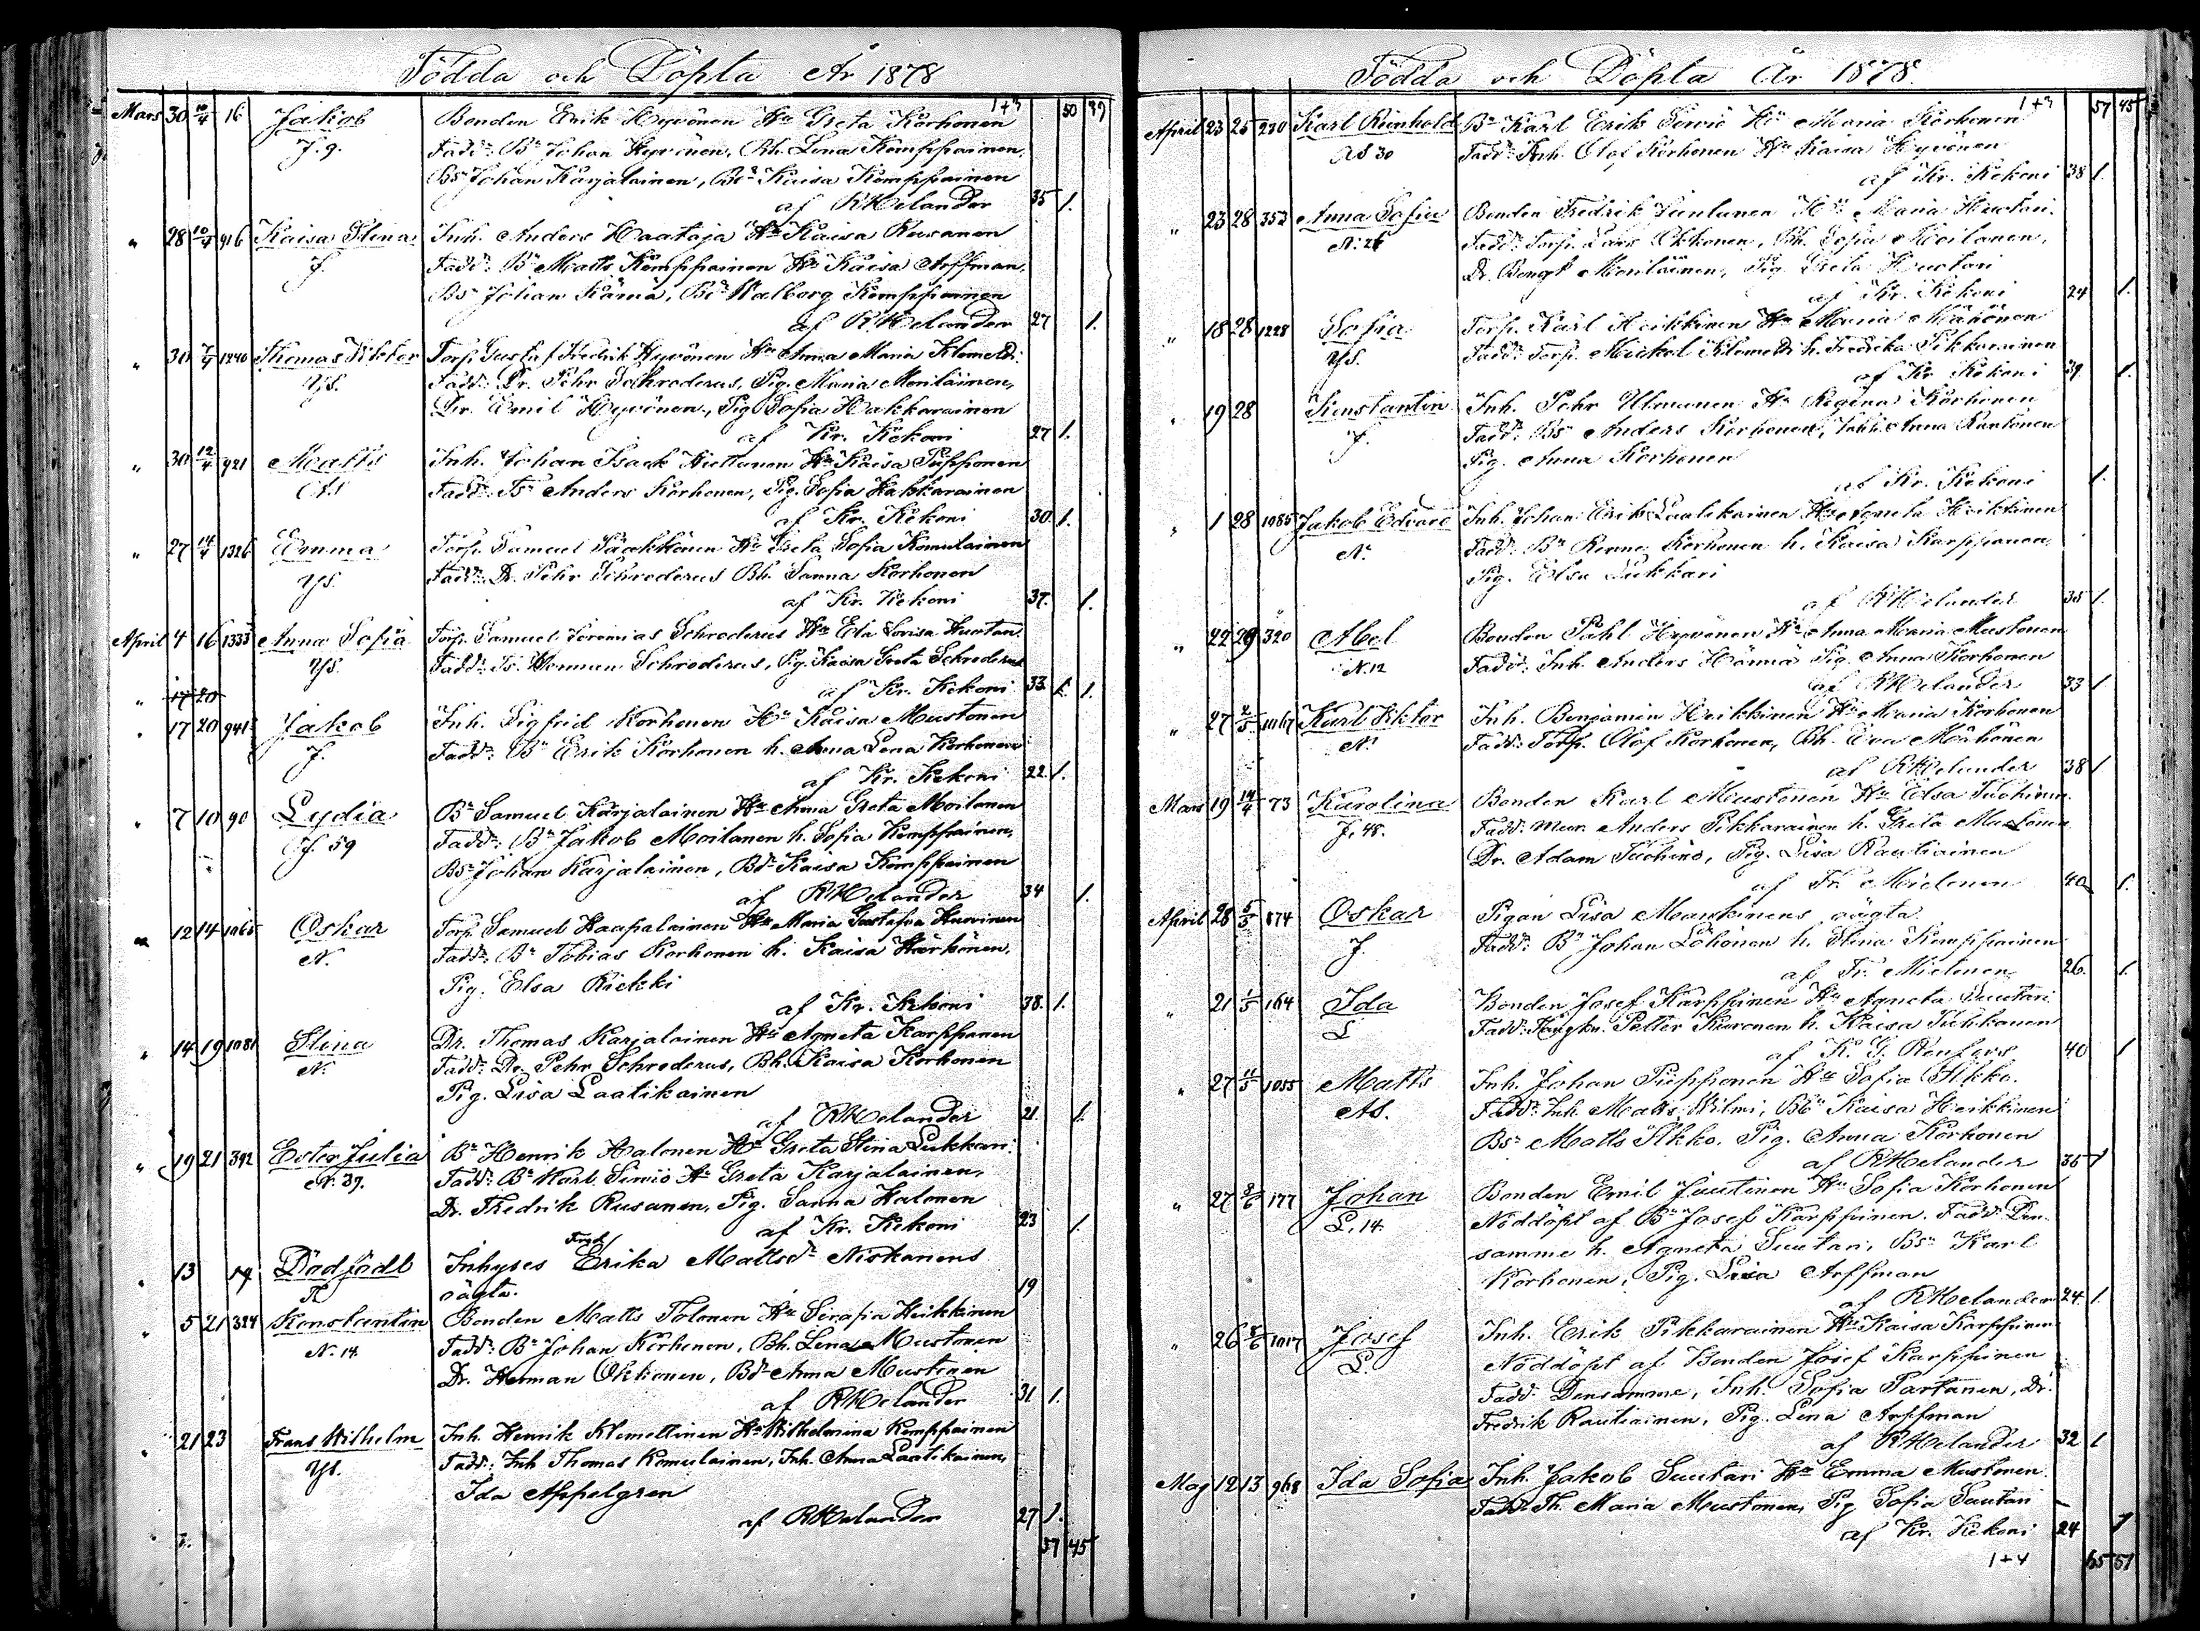 Födda och Döpta År 1878
1+3 50 39
Mars 30 10/4 16 Jakob Bonden Erik Hyvönen Hu Greta Korhonen
J. 9. Fadd: Bn Johan Hyvönen, Bh. Lena Kemppainen,
Bs Johan Karjalainen, Bd Kaisa Kemppainen
af RHelander 35 1.
" 28 10/4 916 Kaisa Stina Inh. Anders Haataja Hu Kaisa Rusanen
J. Fadd: Bn Matts Kemppainen Hu Kaisa Arffman,
Bs Johan Kämä, Bd Walborg Kemppainen
af RHelander 27 1.
" 30 7/4 1240 Thomas Viktor Torp. Gustaf Fredrik Hyvönen Hu Anna Maria Klemetti
Ys. Fadd: Dr. Pehr Schroderus, Pig. Maria Meriläinen,
Dr. Emil Hyvönen, Pig Sofia Hakkarainen
af Kr. Kekoni 27 1.
" 30 12/4 921 Matts Inh. Johan Isack Hiettanen Hu Kaisa Piipponen
As Fadd: Ts Anders Korhonen, Pig. Sofia Hakkarainen
af Kr. Kekoni 30 1.
" 27 14/4 1326 Emma Torp. Samuel Pääkkönen Hu Greta Sofia Komulainen
Ys. Fadd: Dr. Pehr Schroderus Bh. Sanna Korhonen
af Kr. Kekoni 37. 1.
April 4 16 1333 Anna Sofia Torp. Samuel Jeremias Schroderus Hu Eda Lovisa Huotari
Ys. Fadd: Ts. Herman Schroderus, Pig. Kaisa Greta Schroderus
" 17 20 af Kr. Kekoni 33. 1. 1.
" 17 20 941 Jakob Inh. Sigfrid Korhonen Hu Kaisa Mustonen
J. Fadd: Bn Erik Korhonen h. Anna Lena Korhonen
af Kr. Kekoni 22. 1.
" 7 10 90 Lydia Bn Samuel Karjalainen Hu Anna Greta Moilanen
J. 59 Fadd: Bn Jakob Moilanen h. Sofia Kemppainen,
Bs Johan Karjalainen, Bd Kaisa Kemppainen
af RHelander 34 1.
" 12 14 1065 Oskar Torp. Samuel Haapalainen Hu Maria Gustafva Huovinen
N. Fadd: Bn Tobias Korhonen h. Kaisa Härkönen,
Pig. Elsa Riekki
af Kr. Kekoni 38. 1.
" 14 19 1081 Stina Dr. Thomas Karjalainen Hu Agneta Karppanen
N. Fadd: Dr. Pehr Schroderus, Bh. Kaisa Korhonen
Pig. Lisa Laatikainen
af RHelander 21. 1.
" 19 21 392 Ester Julia Bn Henrik Halonen Hu Greta Stina Lukkari
N. 37. Fadd: Bn Karl Simiö Hu Greta Karjalainen,
Dr. Fredrik Rusanen, Pig. Sanna Halonen
af Kr. Kekoni 23 1.
" 13 Dödfödt Inhyses Erika Mattsdr Niskanens
oägta. 19
" 5 21 324 Konstantin Bonden Matts Tolonen Hu Serafia Heikkinen
N. 14. Fadd: Bn Johan Korhonen, Bh. Lena Mustonen
Dr. Herman Okkonen, Bd Anna Mustonen
af RHelander 31 1.
" 21 23 Frans Wilhelm Inh. Henrik Klemettinen Hu Wilhelmina Kemppainen
Ys. Fadd: Inh Thomas Komulainen, Inh. Anna Laatikainen,
Ida Appelgren
af RHelander 27 1.
57 45
Födda och Döpta År 1878.
1+3 57 45
April 23 25 220 Karl Reinhold Bn Karl Erik Simiö Hu Maria Korhonen
As 30 Fadd: Inh. Olof Korhonen Hu Kaisa Hyvönen
af Kr. Kekoni 38 1.
" 23 28 353 Anna Sofia Bonden Fredrik Juntunen Hu Maria Huotari.
N. 26 Fadd: Torp. Lars Okkonen, Bh. Sofia Moilanen,
Dr. Bengt Meriläinen, Pig. Greta Huotari
af Kr. Kekoni 24 1.
" 18 28 1228 Sofia Torp. Karl Heikkinen Hu Maria Mähönen
Ys. Fadd: Torp. Mickel Klemetti h. Fredrika Pikkarainen
af Kr Kekoni 39 1.
" 19 28 Konstantin Inh. Pehr Ulmanen Hu Regina Korhonen
J. Fadd: Bs Anders Korhonen, Anna Rantonen
Pig. Anna Korhonen
af Kr. Kekoni 1.
" 1 28 1085 Jakob Edvard Inh. Johan Erik Laatikainen Hu Agneta Heikkinen
N. Fadd: Bn Korhonen h. Kaisa Karppanen,
Pig. Elsa Lukkari
af RHelander 35 1.
" 22 29 320 Abel Bonden Påhl Hyvönen Hu Anna Maria Mustonen
N. 12 Fadd: Inh. Anders Hänniä Pig. Anna Korhonen
af RHelander 33 1.
" 27 2/5 1167 Karl Viktor Inh. Benjamin Heikkinen Hu Maria Korhonen
N. Fadd: Torp. Olof Korhonen, Bh. Eva Mähönen
af RHelander 38 1
Mars 19 14/4 73 Karolina Bonden Karl Mustonen Hu Elsa Tuohino
J. 48. Fadd: Mur. Anders Pikkarainen h. Greta Mustonen
Dr. Adam Tuohino, Pig. Lisa Rautiainen
af Fr. Mielonen 40 1.
April 28 5/5 874 Oskar Pigan Lisa Mankinens oägta
J. Fadd: Bn Johan Löhönen h. Stina Kemppainen
af Fr. Mielonen 26. 1.
" 21 1/5 164 Ida Bonden Josef Karppinen Hu Agneta Suutari
L Fadd: Petter Kuronen h. Kaisa Tuhkanen
af K. G. Renfors 40 1
" 27 11/5 1055 Matts Inh. Johan Piipponen Hu Sofia Ikko.
As. Fadd: Inh Matts Wilmi, Kaisa Heikkinen
Bs Matts Ikko, Pig. Anna Korhonen
af RHelander 36 1
" 27 2/6 177 Johan Bonden Emil Juutinen Hu Sofia Korhonen
L. 14. Nöddöpt af Bn Josef Karppinen. Fadd: Den-
samme h. Agneta Suutari, Bs Karl
Korhonen, Pig. Lisa Arffman
af RHelander 24 1.
" 26 2/6 1017 Josef Inh. Erik Pikkarainen Hu Kaisa Karppinen
L. Nöddöpt af Bonden Josef Karppinen
Fadd. Densamme, Inh. Sofia Partanen, Dr.
Fredrik Rautiainen, Pig. Lena Arffman
af RHelander 32 1
Maj 12 13 968 Ida Sofia Inh. Jakob Suutari Hu Emma Mustonen.
Fadd Th. Maria Mustonen, Pig Sofia Suutari
af Kr. Kekoni 24 1
1+4 65 51